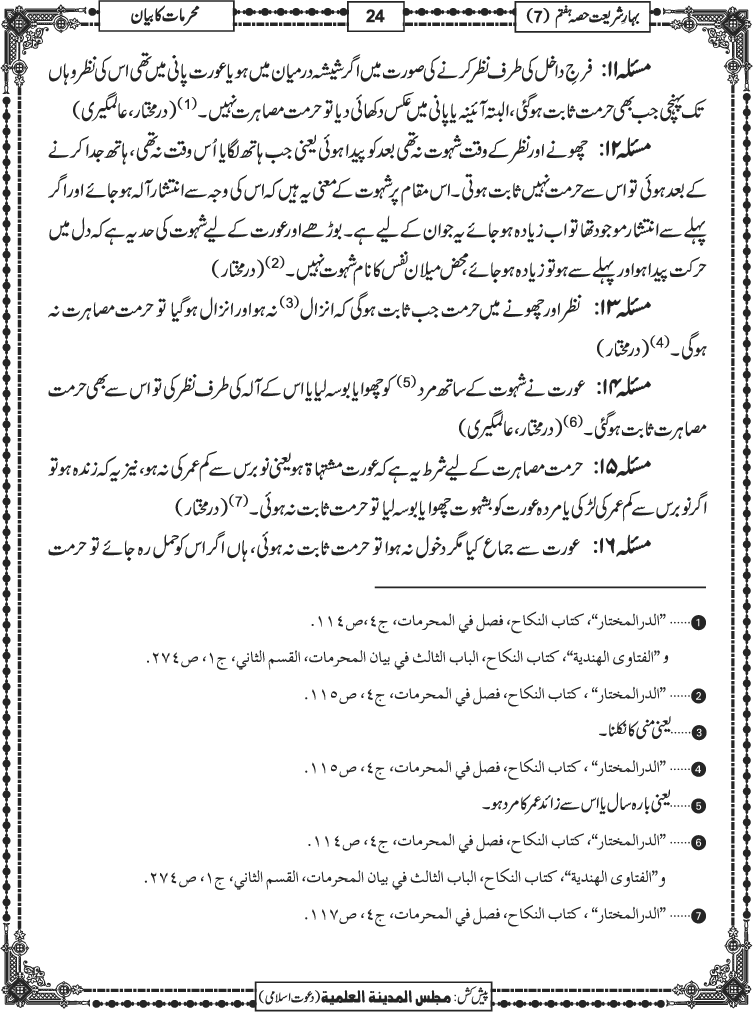 بہارِ شریعت حصہ ہفتم (7)
24
محرمات کا بیان
مسئلہ ۱۱: فرجِ داخل کی طرف نظر کرنے کی صورت میں اگر شیشہ درمیان میں ہو یا عورت پانی میں تھی اس کی نظر وہاں
تک پہنچی جب بھی حرمت ثابت ہوگئی، البتہ آئینہ یا پانی میں عکس دکھائی دیا تو حرمت مصاہرت نہیں۔(1) (درمختار، عالمگیری)
مسئلہ ۱۲: چھونے اور نظر کے وقت شہوت نہ تھی بعد کو پیدا ہوئی یعنی جب ہاتھ لگایا اُس وقت نہ تھی، ہاتھ جدا کرنے
کے بعد ہوئی تو اس سے حرمت نہیں ثابت ہوتی۔ اس مقام پر شہوت کے معنی یہ ہیں کہ اس کی وجہ سے انتشار آلہ ہو جائے اور اگر
پہلے سے انتشار موجود تھا تو اب زیادہ ہو جائے یہ جوان کے لیے ہے۔ بوڑھے اور عورت کے لیے شہوت کی حد یہ ہے کہ دل میں
حرکت پیدا ہو اور پہلے سے ہو تو زیادہ ہو جائے، محض میلان نفس کا نام شہوت نہیں۔(2) (درمختار)
مسئلہ ۱۳: نظر اور چھونے میں حرمت جب ثابت ہوگی کہ انزال(3) نہ ہو اور انزال ہوگیا تو حرمت مصاہرت نہ
ہوگی۔(4) (درمختار)
مسئلہ ۱۴: عورت نے شہوت کے ساتھ مرد(5) کو چھوا یا بوسہ لیا یا اس کے آلہ کی طرف نظر کی تو اس سے بھی حرمت
مصاہرت ثابت ہوگئی۔(6) (درمختار، عالمگیری)
مسئلہ ۱۵: حرمت مصاہرت کے لیے شرط یہ ہے کہ عورت مشتہاۃ ہو یعنی نو برس سے کم عمر کی نہ ہو، نیز یہ کہ زندہ ہو تو
اگر نو برس سے کم عمر کی لڑکی یا مردہ عورت کو بشہوت چھوا یا بوسہ لیا تو حرمت ثابت نہ ہوئی۔(7) (درمختار)
مسئلہ ۱۶: عورت سے جماع کیا مگر دخول نہ ہوا تو حرمت ثابت نہ ہوئی، ہاں اگر اس کو حمل رہ جائے تو حرمت
1 ......"الدرالمختار"، کتاب النکاح، فصل في المحرمات، ج٤، ص١١٤.
و "الفتاوی الهندية"، کتاب النکاح، الباب الثالث في بیان المحرمات، القسم الثاني، ج١، ص٢٧٤.
2 ......"الدرالمختار"، کتاب النکاح، فصل في المحرمات، ج٤، ص١١٥.
3 ......یعنی منی کا نکلنا۔
4 ......"الدرالمختار"، کتاب النکاح، فصل في المحرمات، ج٤، ص١١٥.
5 ......یعنی بارہ سال یا اس سے زائد عمر کا مرد ہو۔
6 ......"الدرالمختار"، کتاب النکاح، فصل في المحرمات، ج٤، ص١١٤.
و"الفتاوی الهندية"، کتاب النکاح، الباب الثالث في بیان المحرمات، القسم الثاني، ج١، ص٢٧٤.
7 ......"الدرالمختار"، کتاب النکاح، فصل في المحرمات، ج٤، ص١١٧.
پیش کش: مجلس المدینة العلمیة (دعوتِ اسلامی)